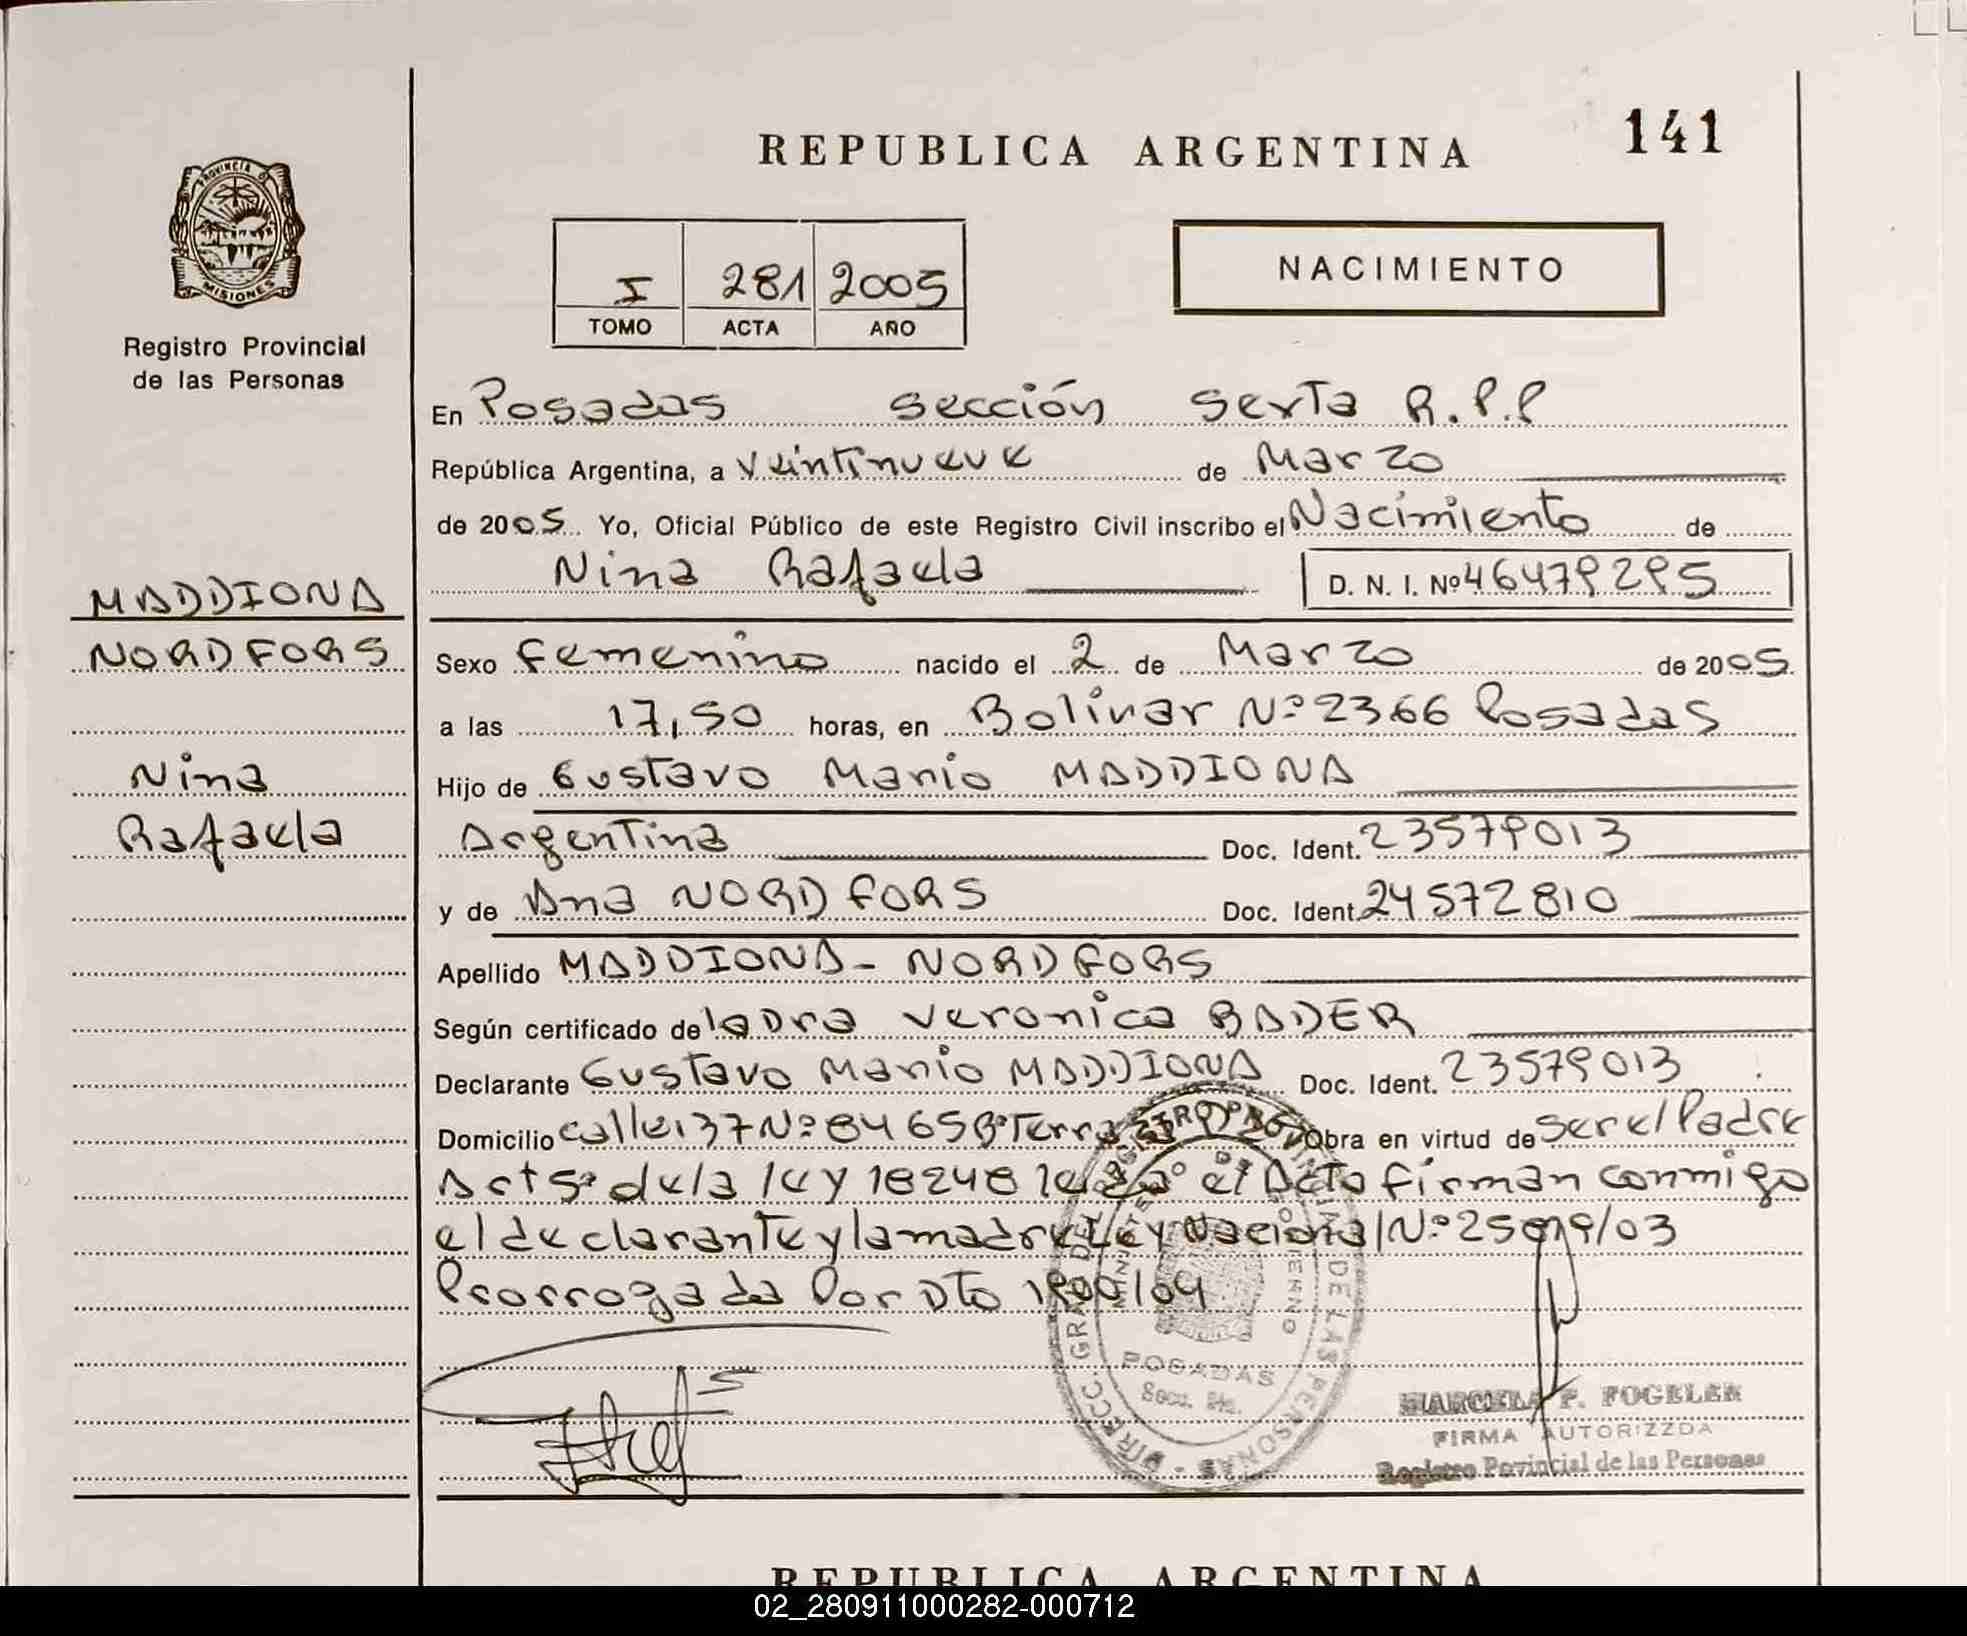 REPUBLICA ARGENTINA
141
PROVINCIA DE
MISIONES
Registro Provincial
de las Personas
I 281 2005
TOMO ACTA AÑO
NACIMIENTO
En Posadas sección sexta R.P.P
República Argentina, a Veintinueve de Marzo
de 2005 Yo, Oficial Público de este Registro Civil inscribo el Nacimiento de
Nina Rafaela D. N. I. Nº 46479295
MADDIONA
NORDFORS
Nina
Rafaela
Sexo femenino nacido el 2 de Marzo de 2005
a las 17,50 horas, en Bolivar Nº 2366 Posadas
Hijo de Gustavo Mario MADDIONA
Argentina Doc. Ident. 23579013
y de Ana NORDFORS Doc. Ident. 24572810
Apellido MADDIONA - NORDFORS
Según certificado de la Dra Veronica BADER
Declarante Gustavo Mario MADDIONA Doc. Ident. 23579013
Domicilio calle 137 Nº 8465 Bº Obra en virtud de ser el Padre
Art 5º de la ley 18248 el Acto firman conmigo
el declarante y la madre Ley Nacional Nº
Prorrogada Por Dto
POSADAS
Secc. 6ta.
MARCELA P. FOGELER
FIRMA AUTORIZZDA
Registro Provincial de las Personas
REPUBLICA ARGENTINA
02_280911000282-000712